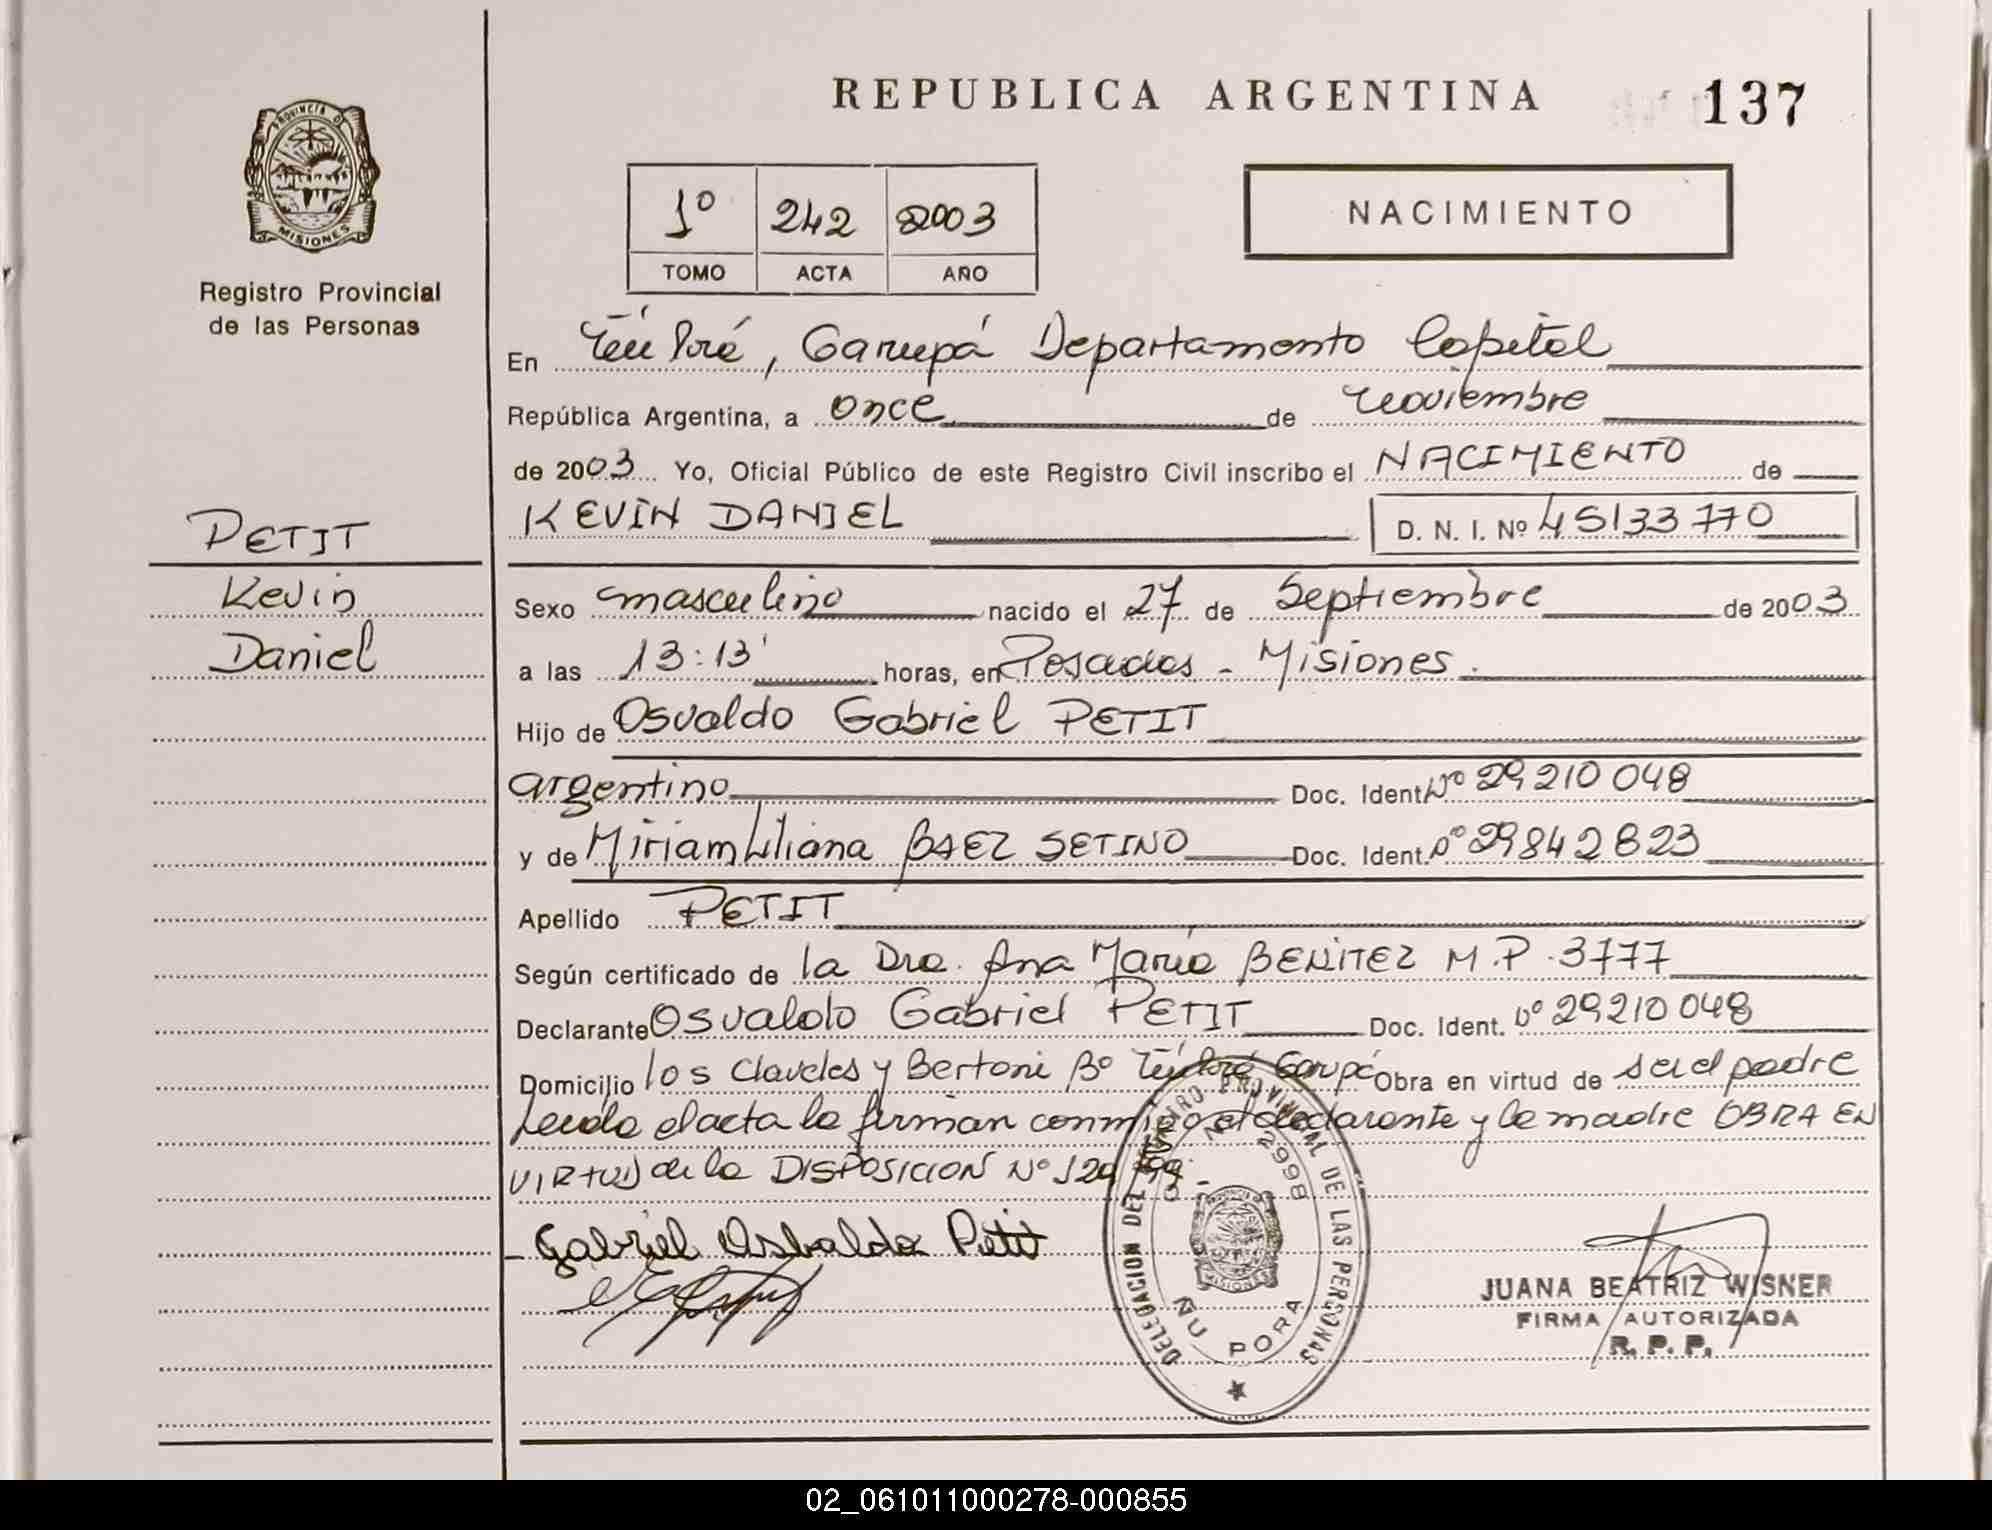 REPUBLICA ARGENTINA
137
PROVINCIA DE
MISIONES
Registro Provincial
de las Personas
1º 242 2003
TOMO ACTA AÑO
NACIMIENTO
En Ñú Porá, Garupá Departamento Capital
República Argentina, a once de noviembre
de 2003 Yo, Oficial Público de este Registro Civil inscribo el NACIMIENTO de
KEVIN DANIEL D. N. I. Nº 45133770
PETIT
Kevin
Daniel
Sexo masculino nacido el 27 de Septiembre de 2003
a las 13:13' horas, en Posadas - Misiones.
Hijo de Osvaldo Gabriel PETIT
argentino Doc. Ident Nº 29210048
y de Miriam Liliana BAEZ SETINO Doc. Ident. Nº 29842823
Apellido PETIT
Según certificado de la Dra. Ana María BENITEZ M.P. 3777
Declarante Osvaldo Gabriel PETIT Doc. Ident. Nº 29210048
Domicilio los Claveles y Bertoni Bº Ñú Porá Garupá Obra en virtud de ser el padre
Leida el acta la firman conmigo el declarante y la madre OBRA EN
VIRTUD de la DISPOSICION Nº 129/99.-
Gabriel Osbaldo Petit
DELEGACION DEL REGISTRO PROVINCIAL DE LAS PERSONAS
2998
ÑU PORA
JUANA BEATRIZ WISNER
FIRMA AUTORIZADA
R. P. P.
02_061011000278-000855